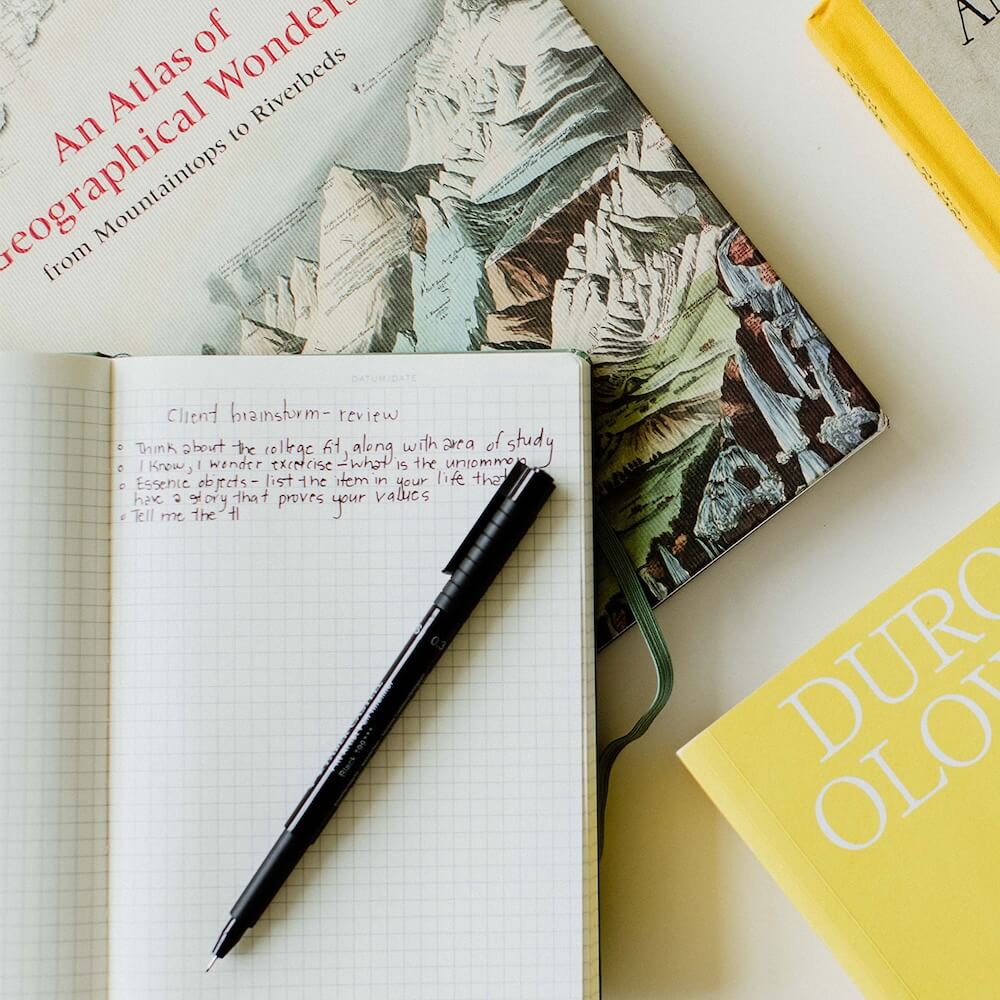 An Atlas of
Geographical Wonders
from Mountaintops to Riverbeds
DATUM/DATE
Client brainstorm - review
Think about the college fit, along with area of study
I know, I wonder exercise - what is the uncommon
Essence objects - list the item in your life that
have a story that proves your values
Tell me the tl
0.3
Black
DURO
OLOW